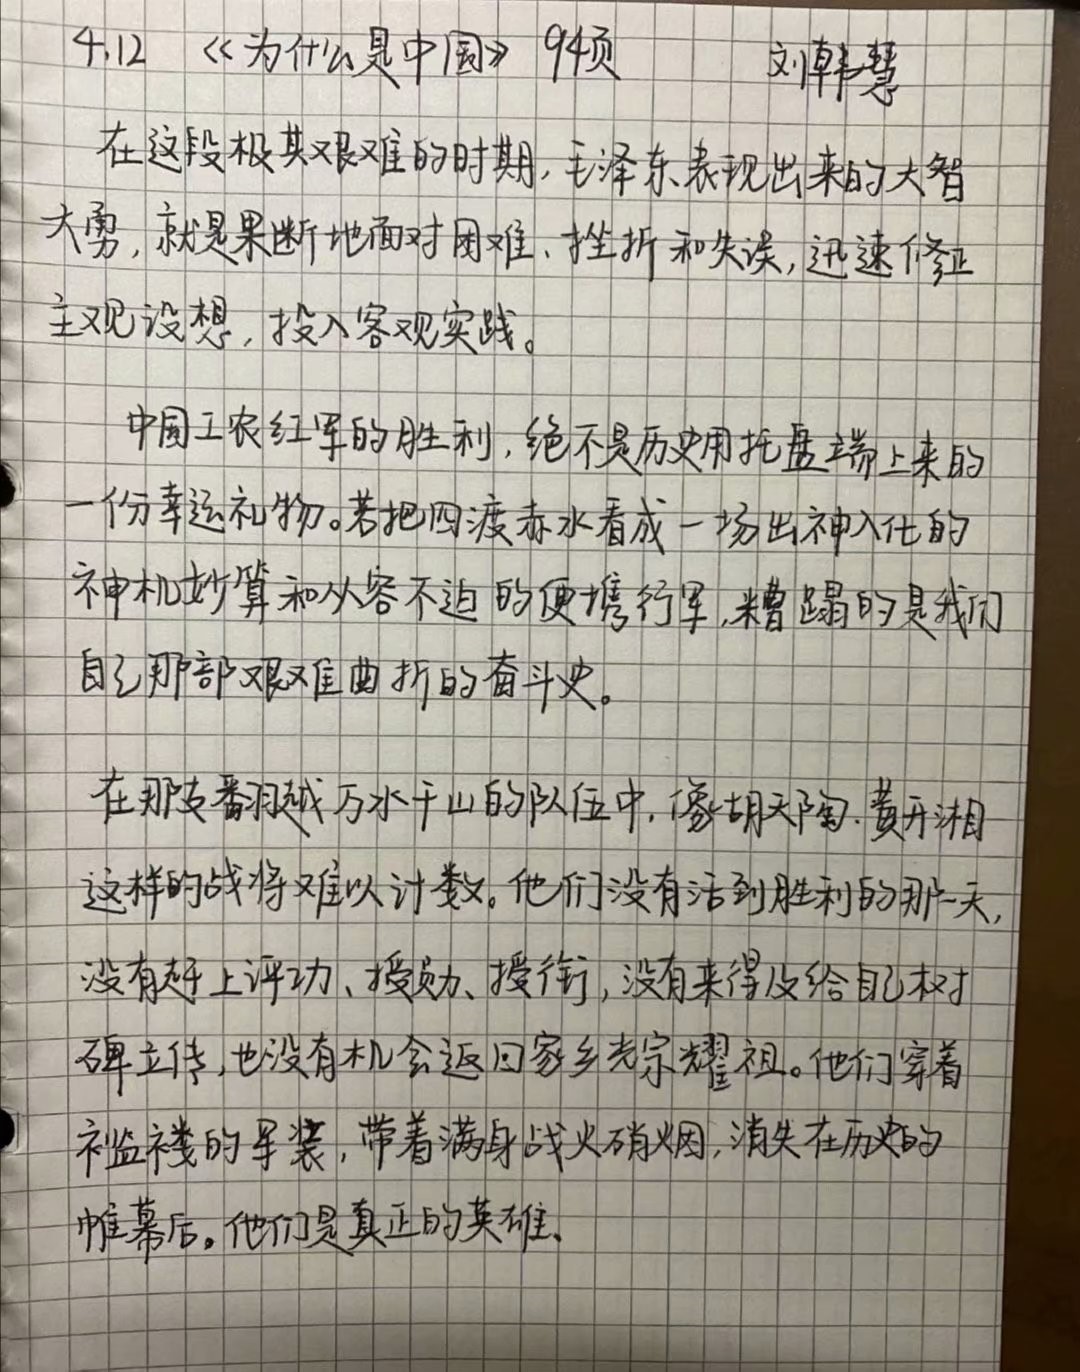 4.12 《为什么是中国》 94页 刘韩慧
在这段极其艰难的时期,毛泽东表现出来的大智
大勇,就是果断地面对困难、挫折和失误,迅速修正
主观设想,投入客观实践。
中国工农红军的胜利,绝不是历史用托盘端上来的
一份幸运礼物。若把四渡赤水看成一场出神入化的
神机妙算和从容不迫的便携行军,糟蹋的是我们
自己那部艰难曲折的奋斗史。
在那支翻越万水千山的队伍中,像胡天陶、黄开湘
这样的战将难以计数。他们没有活到胜利的那一天,
没有赶上评功、授勋、授衔,没有来得及给自己树
碑立传,也没有机会返回家乡光宗耀祖。他们穿着
褴褛的军装,带着满身战火硝烟,消失在历史的
帷幕后。他们是真正的英雄、